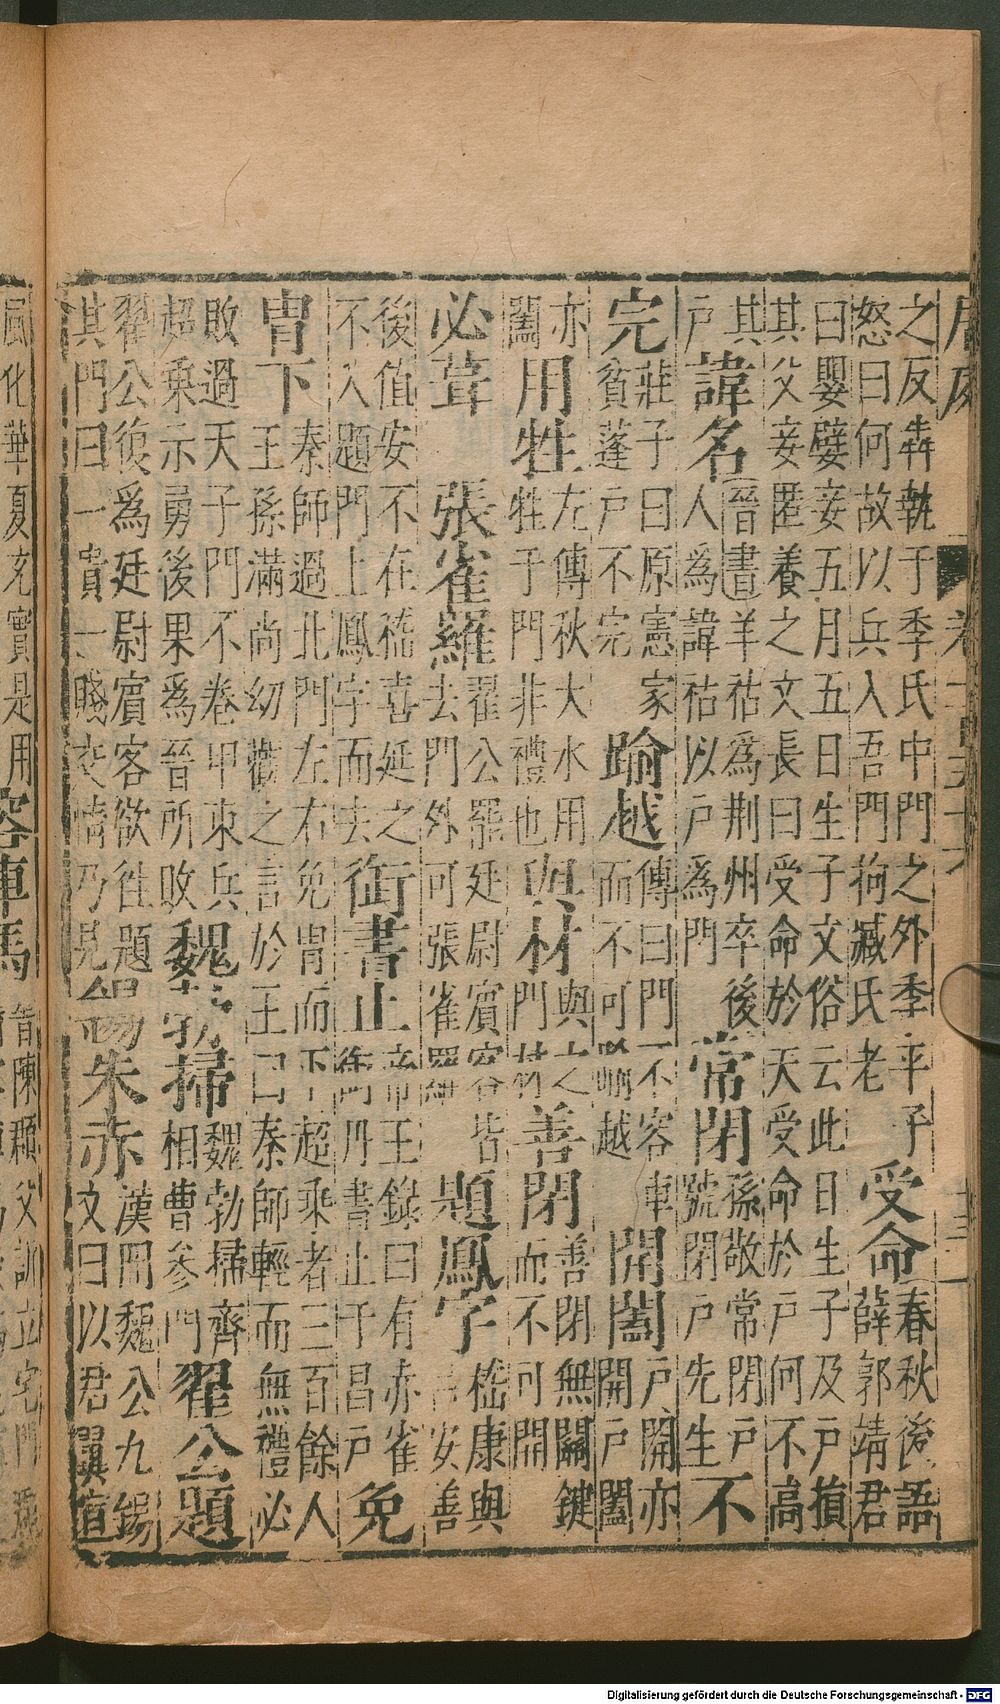 之反犇執于季氏中門之外季平子
怒曰何故以兵入吾門拘臧氏老
受命
春秋後語
薛郭靖君
曰嬰孽妾五月五日生子文俗云此日生子及戶損
其父妾匿養之文長曰受命於天受命於戶何不高
其
戶
諱名
晉書羊祜為荆州卒後
人為諱祜以戶為門
常閉
孫敬常閉戶
號閉戶先生
不
完
莊子曰原憲家
貧蓬戶不完
踰越
傳曰門不容車
而不可踰越
開闔
戶開亦
開戶闔
亦
闔
用牲
左傳秋大水用
牲于門非禮也
與材
與之
門材
善閉
善閉無關鍵
而不可開
必葺
張雀羅
翟公罷廷尉賓客皆
去門外可張雀羅
題鳳字
嵇康與
呂安善
後值安不在嵇喜延之
不入題門上鳳字而去
銜書止
帝王錄曰有赤雀
銜丹書止于昌戶
免
胄下
秦師過北門左右免胄而下超乘者三百餘人
王孫滿尚幼觀之言於王曰秦師輕而無禮必
敗過天子門不卷甲束兵
超乘示勇後果為晉所敗
魏勃掃
魏勃掃齊
相曹參門
翟公題
翟公復為廷尉賓客欲往題
其門曰一貴一賤交情乃見
錫朱赤
漢冊魏公九錫
文曰以君翼宣
風化華夏充實是用
容車馬
Digitalisierung gefördert durch die Deutsche Forschungsgemeinschaft - DFG